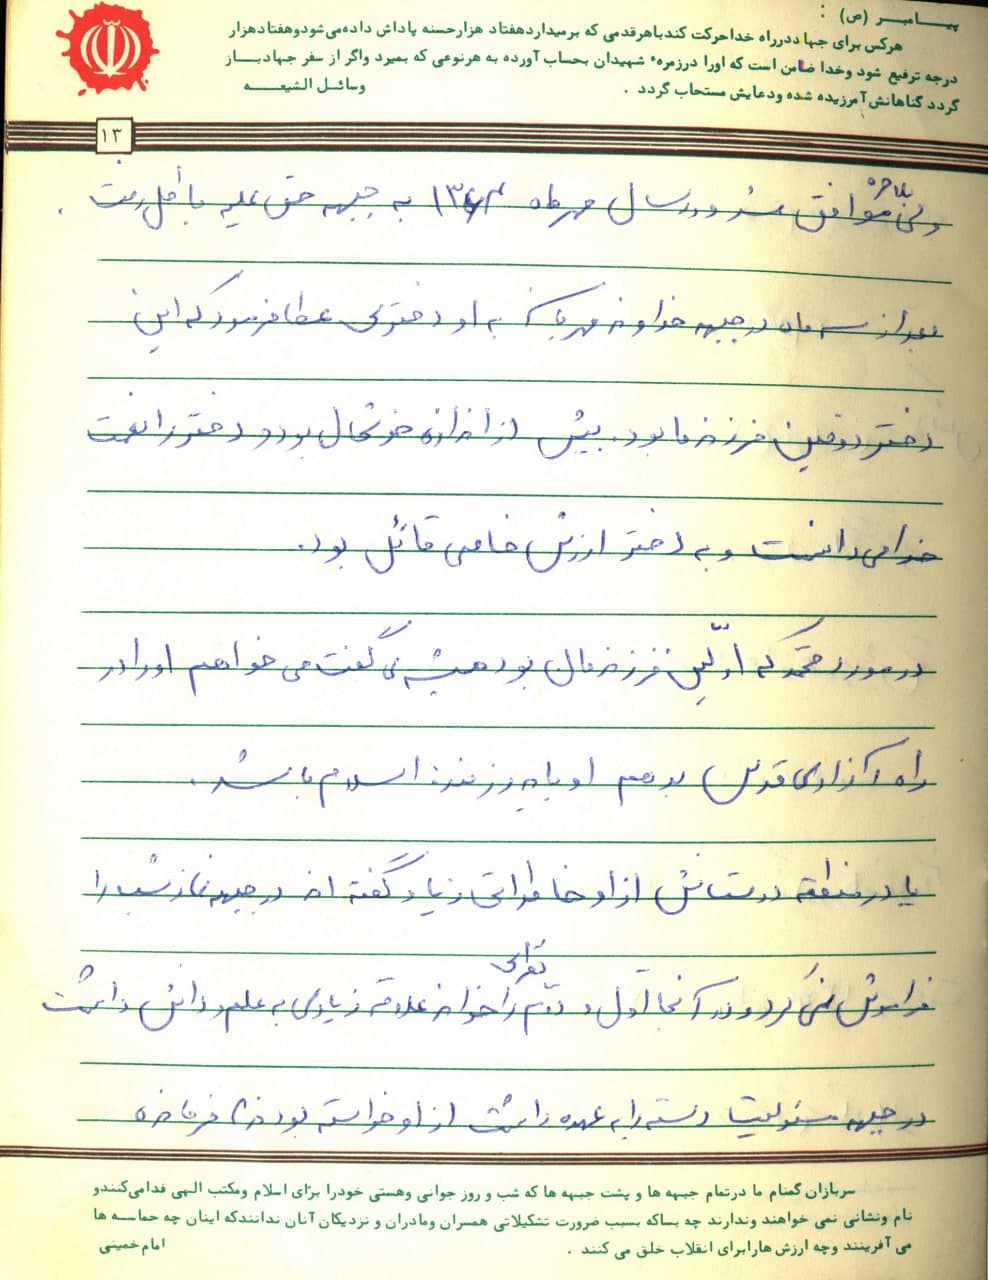 پیامبر (ص) :
هرکس برای جهاددرراه خداحرکت کندباهرقدمی که برمیداردهفتاد هزارحسنه پاداش داده‌می‌شودوهفتادهزار
درجه ترفیع شود وخدا ضامن است که اورا درزمرهٔ شهیدان بحساب آورده به هرنوعی که بمیرد واگر از سفر جهادباز
گردد گناهانش آمرزیده شده ودعایش مستجاب گردد . وسائل الشیعه
۱۳
بلاخره
ولی موافق شد و در سال مهرماه ۱۳۶۳ به جبهه حق علیه باطل رفت .
بعد از سه ماه در جبهه خداوند مهربان به او دختری عطا فرمود که این
دختر دومین فرزند ما بود. بیش از اندازه خوشحال بود و دختر را نعمت
خدا می دانست و به دختر ارزش خاصی قائل بود.
در مورد محمد که اولین فرزندمان بود همیشه می گفت می خواهم او را در
راه آزادی قدس بدهم او باید رزمنده اسلام باشد.
یا در منطقه دوستانش از او خاطراتی زیاد گفته اند در جبهه نماز شب را
فراموش نمی کرد و در آنجا اول و دوم نظری را خواند علاقه زیادی به علم و دانش داشت
در جبهه مسئولیت دسته را به عهده داشت از او خواسته بودند فرمانده
سربازان گمنام ما درتمام جبهه ها و پشت جبهه ها که شب و روز جوانی وهستی خودرا برای اسلام ومکتب الهی فدامی‌کنندو
نام ونشانی نمی خواهند وندارند چه بساکه بسبب ضرورت تشکیلاتی همسران ومادران و نزدیکان آنان ندانندکه اینان چه حماسه ها
می آفرینند وچه ارزش هارابرای انقلاب خلق می کنند . امام‌خمینی